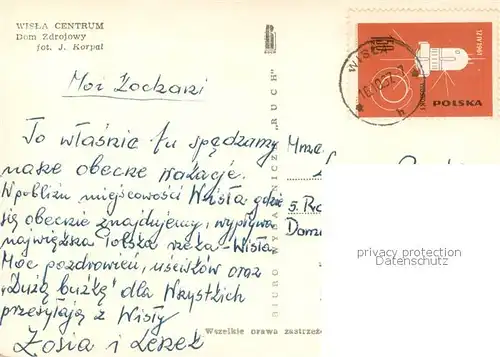 WISŁA CENTRUM
Dom Zdrojowy
fot. J. Korpal
Moi Kochani
To właśnie tu spędzamy
nasze obecne wakacje.
W pobliżu miejscowości Wisła gdzie
się obecnie znajdujemy, wypływa
największa Polska rzeka - Wisła
Moc pozdrowień, uścisków oraz
„Dużą buźkę" dla Wszystkich
przesyłają z Wisły
Zosia i Leszek
BIURO WYDAWNICZE „RUCH"
Wszelkie prawa zastrzeżo
WISŁA
h
POLSKA
12 IV 1961
Mme
5. R
privacy protection
Datenschutz